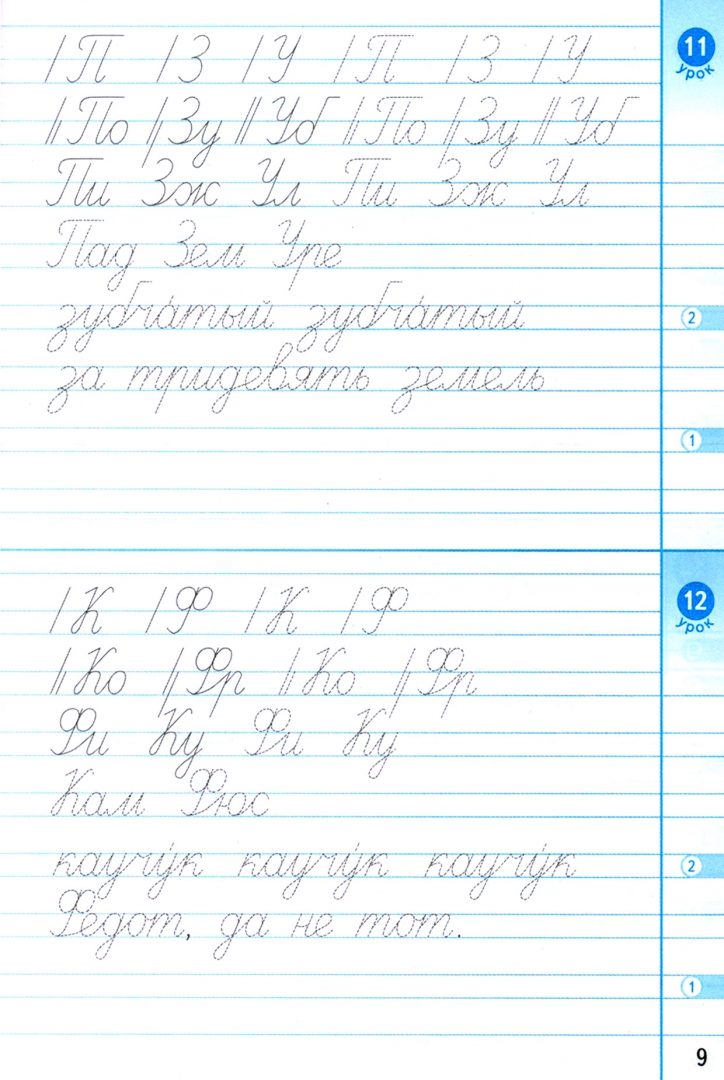 П З У П З У
По Зу Уб По Зу Уб
Пи Зж Ул Пи Зж Ул
Пад Зем Уре
зубча́тый зубча́тый
за тридевять земель
11
урок
2
1
К Ф К Ф
Ко Фр Ко Фр
Фи Ку Фи Ку
Кам Фюс
каучу́к каучу́к каучу́к
Федот, да не тот.
12
урок
2
1
9